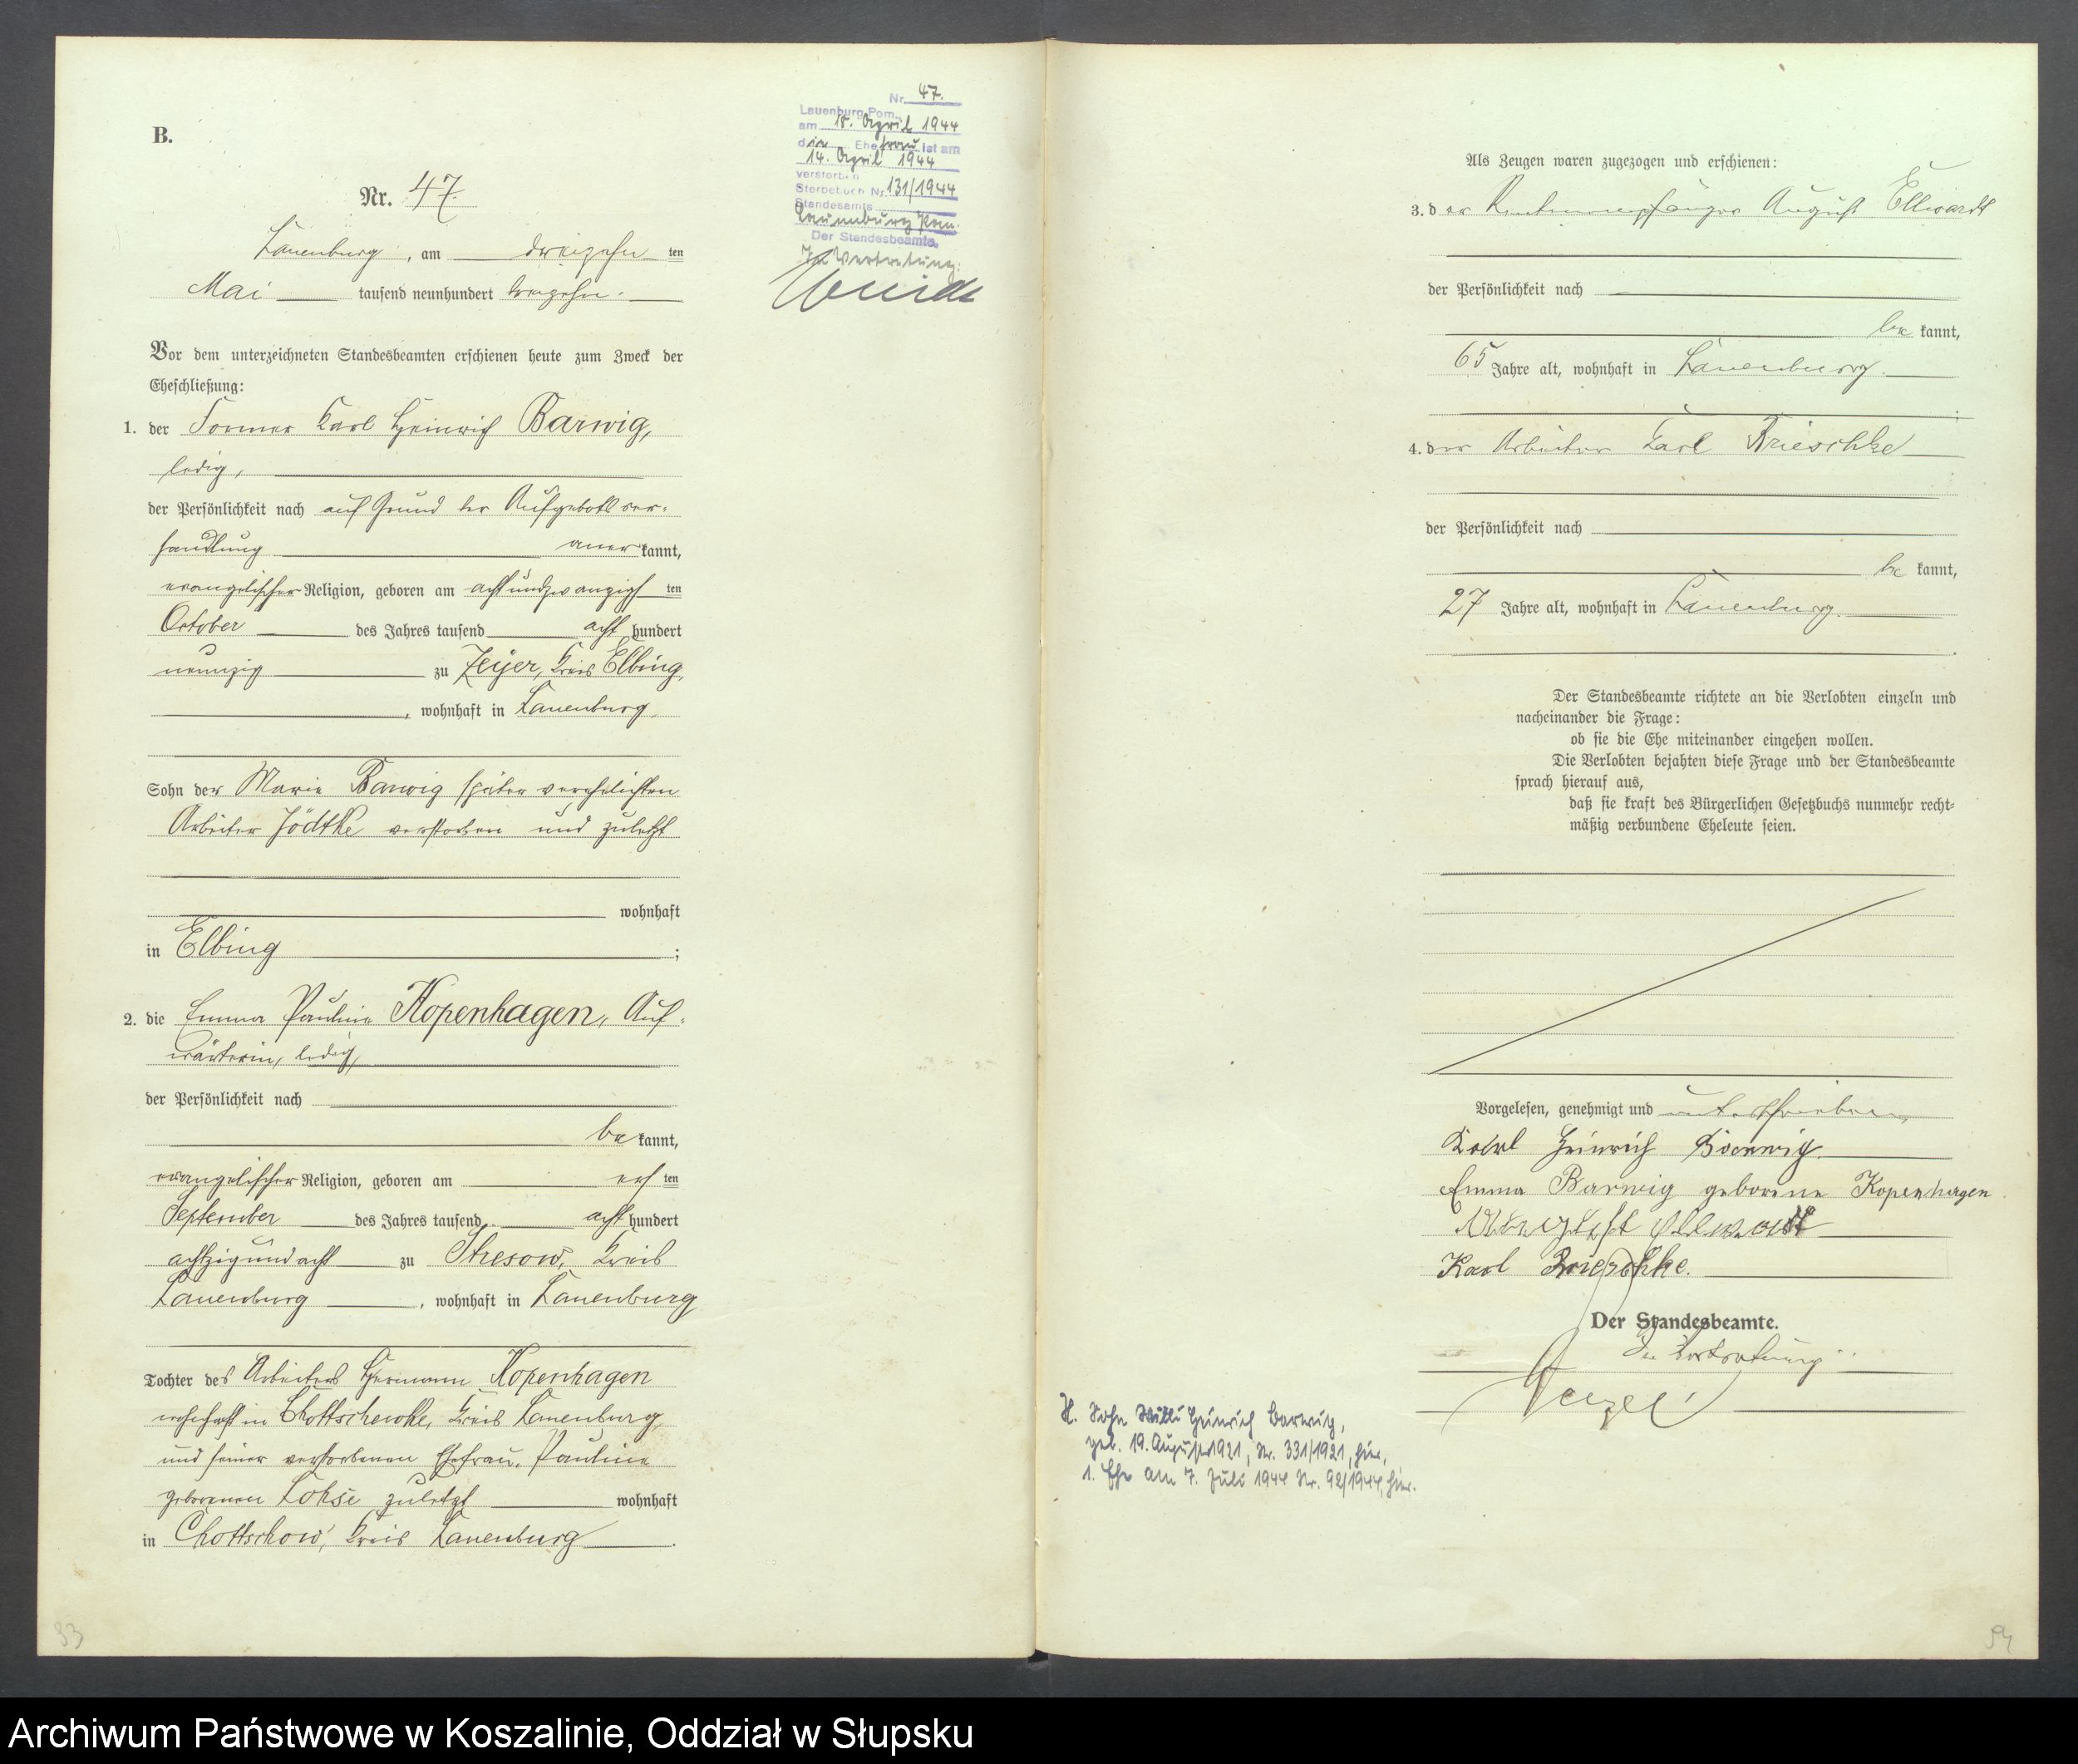 B.
Nr. 47.
Lauenburg, am dreizehn ten
Mai tausend neunhundert dreizehn.
Vor dem unterzeichneten Standesbeamten erschienen heute zum Zweck der
Eheschließung:
1. der Former Karl Heinrich Barwig,
ledig,
der Persönlichkeit nach auf Grund der Aufgebotsver-
handlung anerkannt,
evangelischer Religion, geboren am achtundzwanzigsten
October des Jahres tausend acht hundert
neunzig zu Zeyer, Kreis Elbing,
, wohnhaft in Lauenburg
Sohn der Marie Barwig später verehelichten
Arbeiter Jödtke verstorben und zuletzt
wohnhaft
in Elbing ;
2. die Emma Pauline Kopenhagen, Auf-
wärterin, ledig,
der Persönlichkeit nach
bekannt,
evangelischer Religion, geboren am ersten
September des Jahres tausend acht hundert
achtzigundacht zu Stresow, Kreis
Lauenburg , wohnhaft in Lauenburg
Tochter des Arbeiters Hermann Kopenhagen
wohnhaft in Chottschewke, Kreis Lauenburg,
und seiner verstorbenen Ehefrau, Pauline
geborenen Lohse zuletzt wohnhaft
in Chottschow, Kreis Lauenburg .
33
Nr. 47.
Lauenburg Pom.
am 15. April 1944
die Ehefrau ist am
14. April 1944
verstorben
Sterbebuch Nr. 131/1944
Standesamts
Lauenburg Pom.
Der Standesbeamte.
In Vertretung:
Als Zeugen waren zugezogen und erschienen:
3. der Rentenempfänger August Ellwardt
der Persönlichkeit nach
bekannt,
65 Jahre alt, wohnhaft in Lauenburg.
4. der Arbeiter Karl Brieschke
der Persönlichkeit nach
bekannt,
27 Jahre alt, wohnhaft in Lauenburg.
Der Standesbeamte richtete an die Verlobten einzeln und
nacheinander die Frage:
ob sie die Ehe miteinander eingehen wollen.
Die Verlobten bejahten diese Frage und der Standesbeamte
sprach hierauf aus,
daß sie kraft des Bürgerlichen Gesetzbuchs nunmehr recht-
mäßig verbundene Eheleute seien.
Vorgelesen, genehmigt und unterschrieben
Karl Heinrich Barwig
Emma Barwig geborene Kopenhagen
August Ellwardt
Karl Brieschke.
Der Standesbeamte.
In Vertretung
H. Sohn Willi Heinrich Barwig,
geb. 19. August 1921, Nr. 331/1921, hier,
1. Ehe am 7. Juli 1944 Nr. 92/1944, hier.
54
Archiwum Państwowe w Koszalinie, Oddział w Słupsku